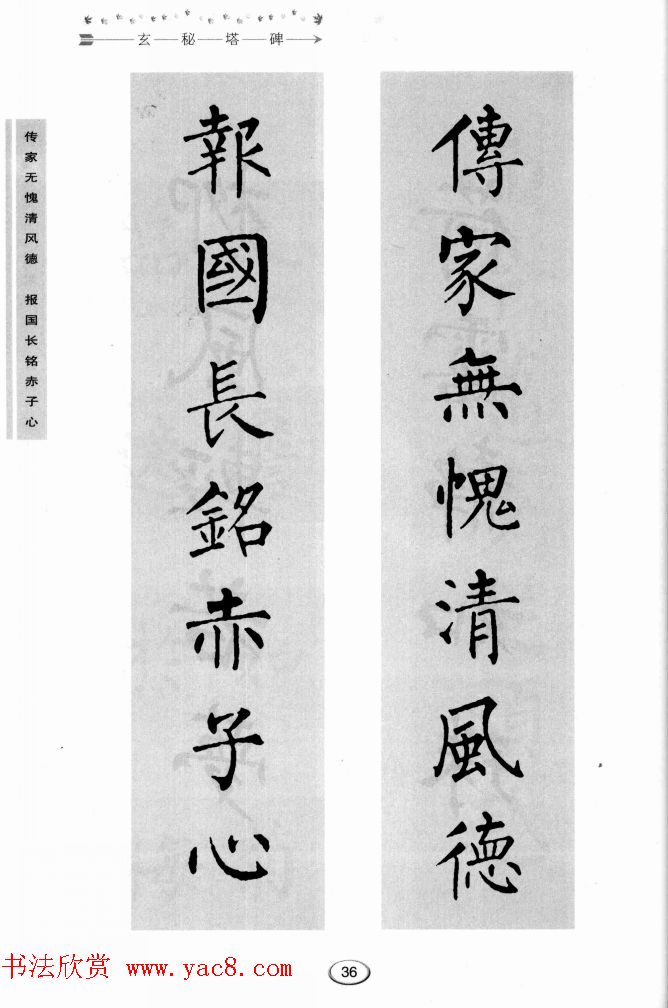 玄秘塔碑
傳家無愧清風德
報國長銘赤子心
传家无愧清风德 报国长铭赤子心
36
书法欣赏 www.yac8.com